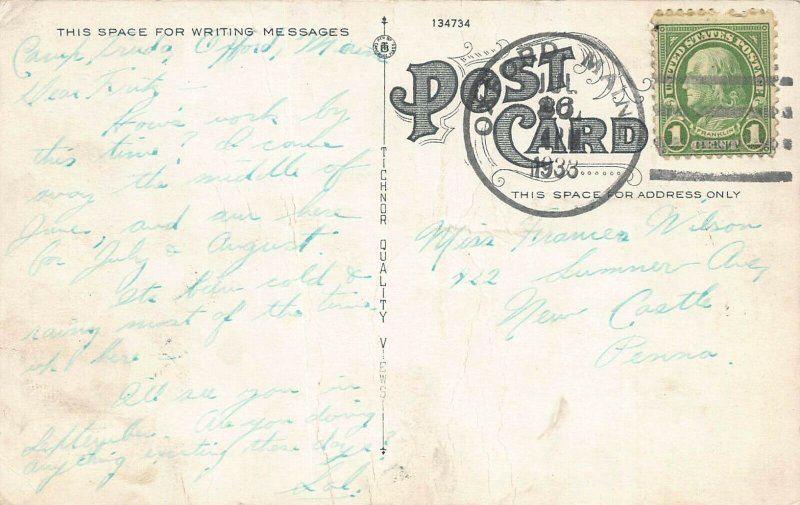 THIS SPACE FOR WRITING MESSAGES
Camp Oxford, Maine
Dear Fritz –
How's work by
this time? I came
away the middle of
June, and am here
for July & August.
It's been cold &
rainy most of the time
up here –
I'll see you in
September. Are you doing
anything exciting these days?
Sal.
TICHNOR QUALITY VIEWS
134734
POST
CARD
OXFORD MAINE
JUL
26
1933
UNITED STATES POSTAGE
FRANKLIN
1 CENT 1
THIS SPACE FOR ADDRESS ONLY
Miss Frances Wilson
122 Sumner Ave,
New Castle
Penna.